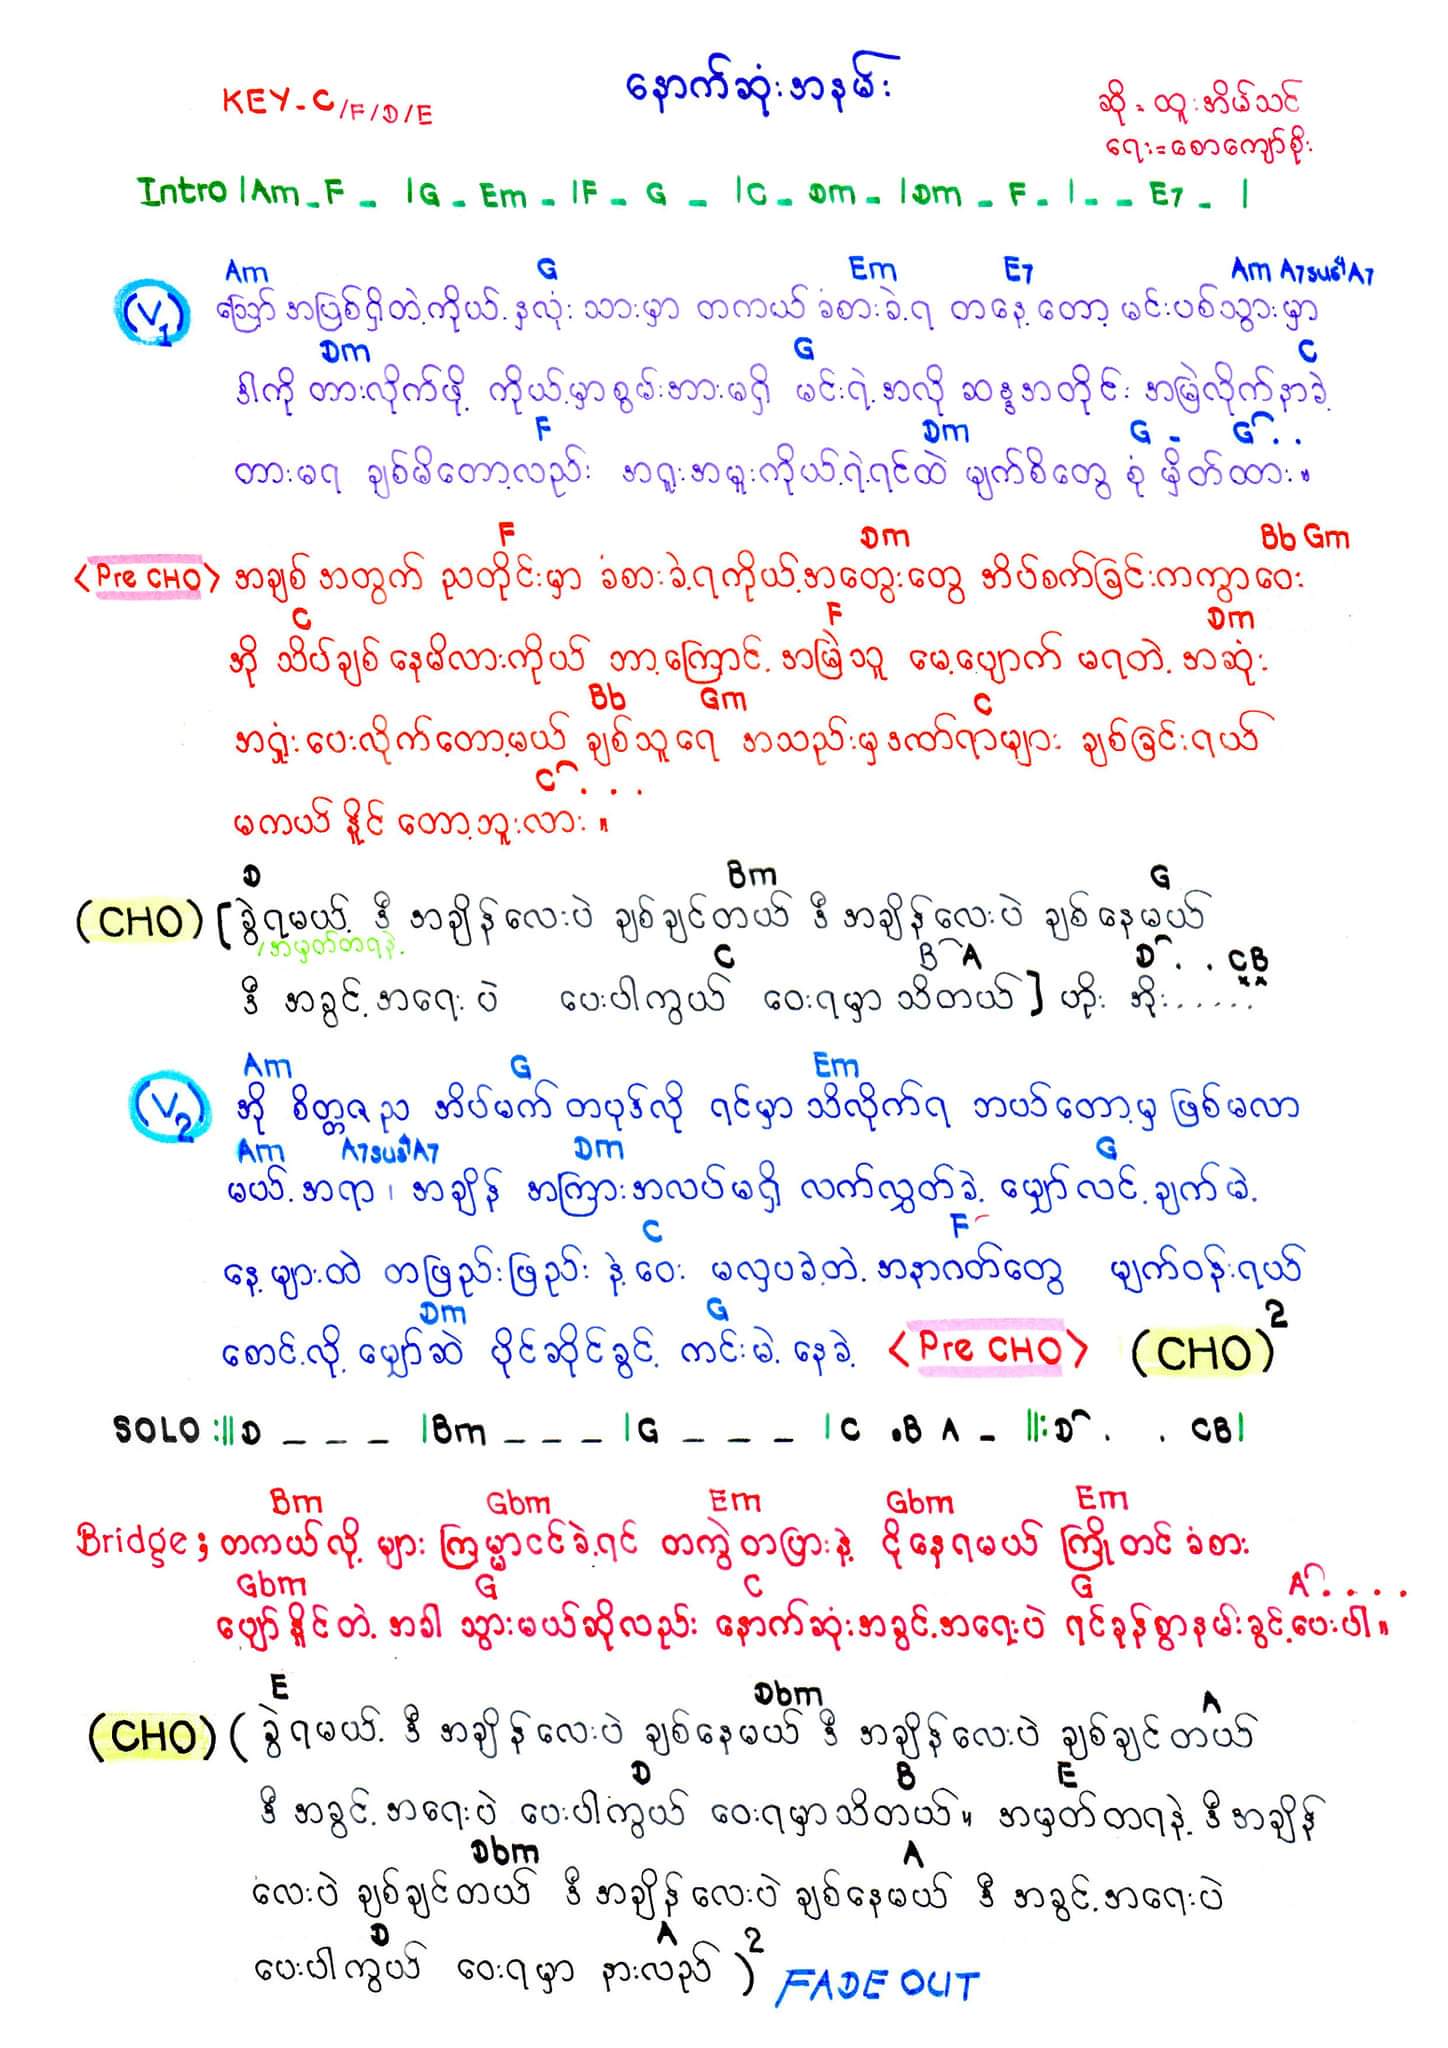 နောက်ဆုံးအနမ်း
KEY-C/F/D/E
ဆို = ထူးအိမ်သင်
ရေး=စောကျော်စိုး
Intro |Am _ F _ |G _ Em _ |F _ G _ |C _ Dm _ |Dm _ F _ | _ _ E7 _ |
Am G Em E7 Am A7sus4 A7
V1 ဪ အဖြစ်ရှိတဲ့ကိုယ့်နှလုံးသားမှာ တကယ်ခံစားခဲ့ရ တနေ့တော့ မင်းပစ်သွားမှာ
Dm G C
ဒါကို တားလိုက်ဖို့ ကိုယ့်မှာစွမ်းအားမရှိ မင်းရဲ့အလို ဆန္ဒအတိုင်း အမြဲလိုက်နာခဲ့
F Dm G - G . .
တားမရ ချစ်မိတော့လည်း အရူးအမူးကိုယ့်ရဲ့ရင်ထဲ မျက်စိတွေ စုံမှိတ်ထား။
F Dm Bb Gm
<Pre CHO> အချစ်အတွက် ညတိုင်းမှာ ခံစားခဲ့ရကိုယ့်အတွေးတွေ အိပ်စက်ခြင်းကကွာဝေး
C F Dm
အို သိပ်ချစ်နေမိလားကိုယ် ဘာ့ကြောင့် အမြဲသူ မေ့ပျောက် မရတဲ့ အဆုံး
Bb Gm C
အရှုံးပေးလိုက်တော့မယ် ချစ်သူရေ အသည်းမှဒဏ်ရာများ ချစ်ခြင်းရယ်
C . . .
မကယ်နိူင်တော့ဘူးလား။
D Bm G
(CHO) [ ခွဲရမယ့် ဒီအချိန်လေးပဲ ချစ်ချင်တယ် ဒီအချိန်လေးပဲ ချစ်နေမယ်
/အမှတ်တရနဲ့
C B A D . . C B
ဒီအခွင့်အရေးပဲ ပေးပါကွယ် ဝေးရမှာသိတယ် ] ဟိုး အိုး......
Am G Em
V2 အို စိတ္တဇည အိပ်မက်တပုဒ်လို ရင်မှာသိလိုက်ရ ဘယ်တော့မှဖြစ်မလာ
Am A7sus4 A7 Dm G
မယ့်အရာ၊ အချိန် အကြားအလပ်မရှိ လက်လွှတ်ခဲ့ မျှော်လင့်ချက်မဲ့
C F
နေ့များထဲ တဖြည်းဖြည်းနဲ့ဝေး မလှပခဲ့တဲ့အနာဂတ်တွေ မျက်ဝန်းရယ်
Dm G
စောင့်လို့မျှော်ဆဲ ပိုင်ဆိုင်ခွင့် ကင်းမဲ့နေခဲ့ <Pre CHO> (CHO)2
SOLO :||D _ _ _ |Bm _ _ _ |G _ _ _ |C .B A _ ||:D . . CB|
Bm Gbm Em Gbm Em
Bridge; တကယ်လို့များ ကြမ္မာငင်ခဲ့ရင် တကွဲတပြားနဲ့ ငိုနေရမယ် ကြိုတင်ခံစား
Gbm G C G A . . . .
ပျော်နိူင်တဲ့အခါ သွားမယ်ဆိုလည်း နောက်ဆုံးအခွင့်အရေးပဲ ရင်ခုန်စွာနမ်းခွင့်ပေးပါ။
E Dbm A
(CHO) ( ခွဲရမယ့် ဒီအချိန်လေးပဲ ချစ်နေမယ် ဒီအချိန်လေးပဲ ချစ်ချင်တယ်
D B E
ဒီအခွင့်အရေးပဲ ပေးပါကွယ် ဝေးရမှာသိတယ်။ အမှတ်တရနဲ့ ဒီအချိန်
Dbm A
လေးပဲ ချစ်ချင်တယ် ဒီအချိန်လေးပဲ ချစ်နေမယ် ဒီအခွင့်အရေးပဲ
D A
ပေးပါကွယ် ဝေးရမှာ နားလည် )2 FADE OUT